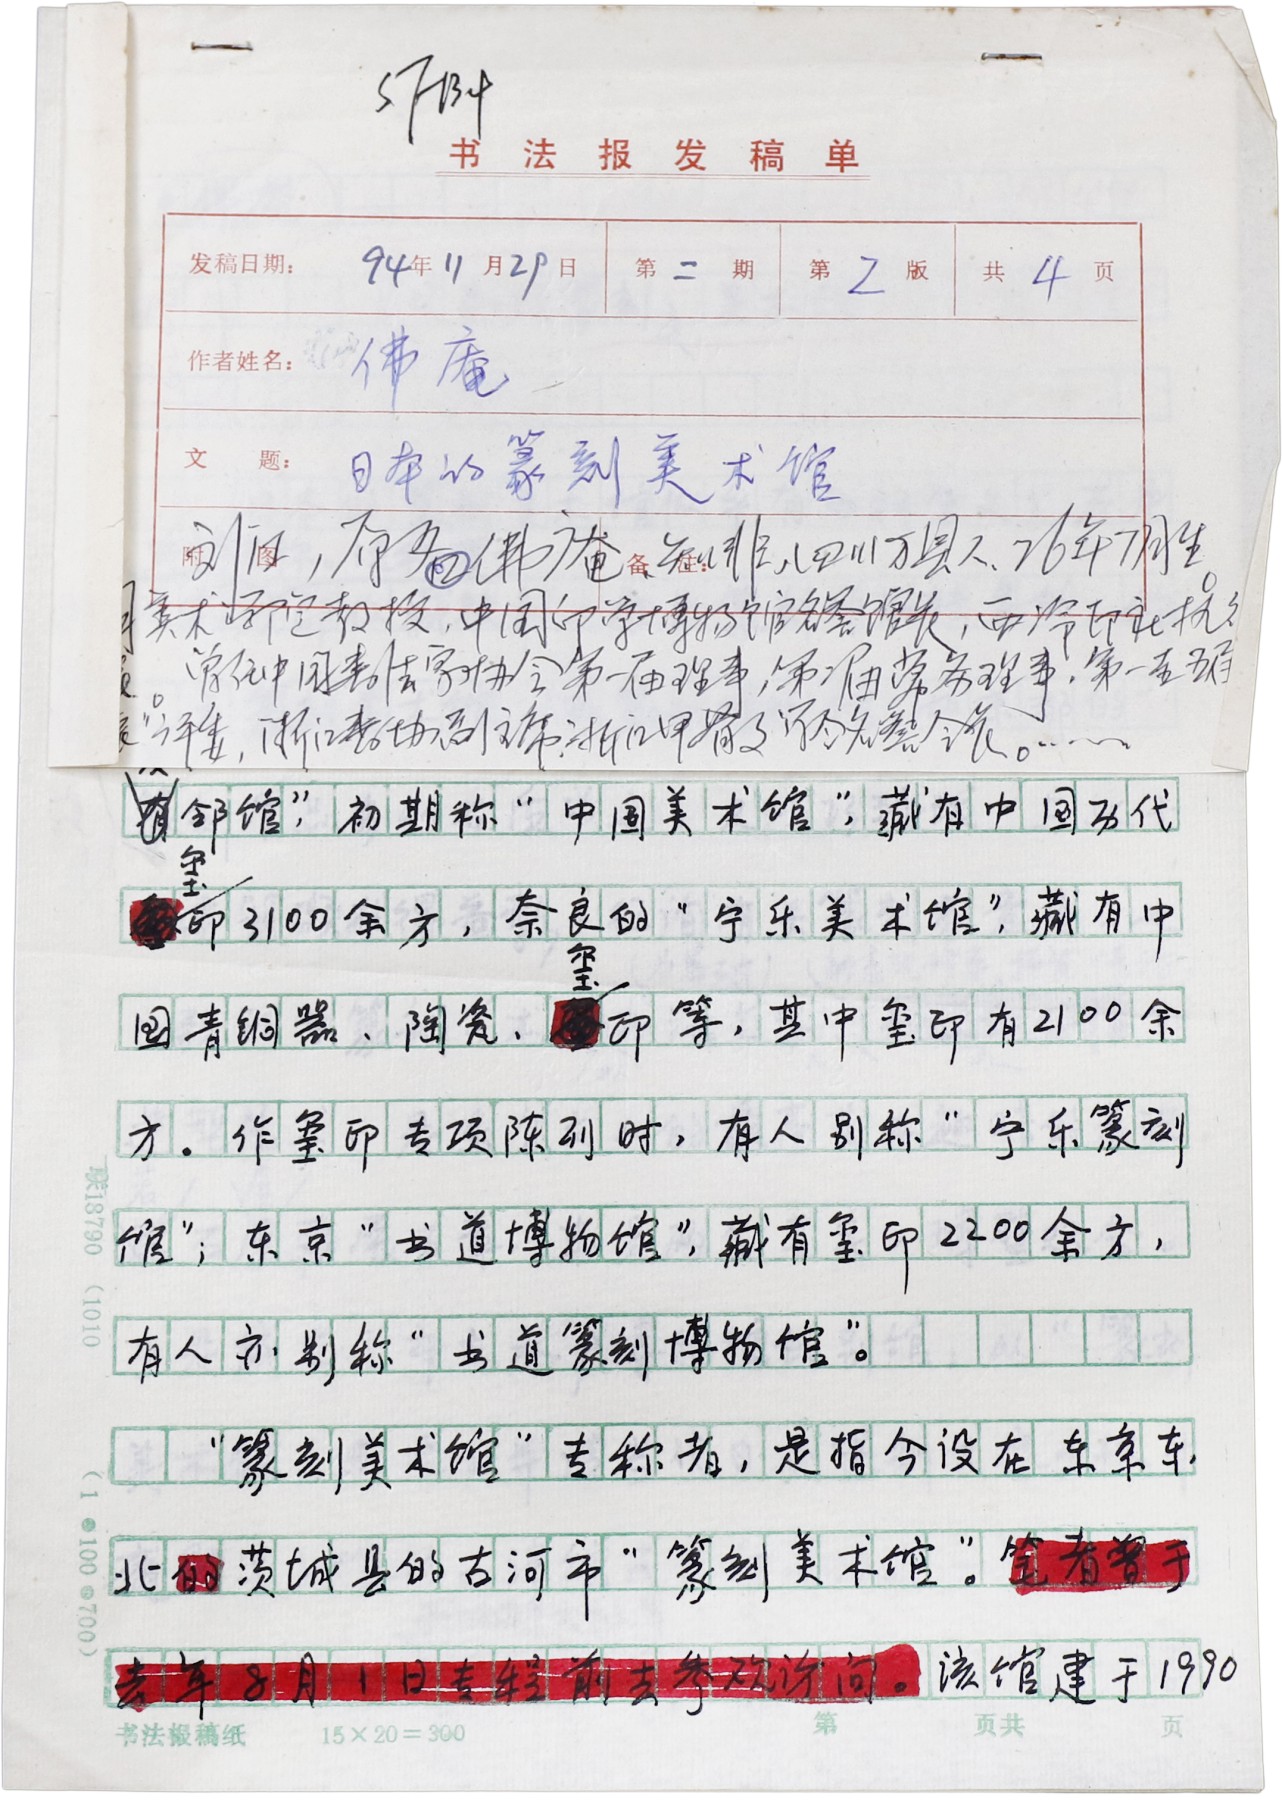 书法报发稿单
发稿日期: 94年11月29日 第二期 第2版 共4页
作者姓名: 佛庵
文题: 日本的篆刻美术馆
附图 备注:
刘江,原名 佛庵、知非,四川万县人、26年7月生。
美术学院教授,中国印学博物馆名誉馆长,西泠印社执
。曾任中国书法家协会第一届理事,第二届常务理事,第一至五届
评委,浙江书协副主席、浙江甲骨文学会名誉会长。……
有邻馆”,初期称“中国美术馆”,藏有中国历代
玺印3100余方,奈良的“宁乐美术馆”,藏有中
国青铜器、陶瓷、玺印等,其中玺印有2100余
方。作玺印专项陈列时,有人别称“宁乐篆刻
馆”;东京“书道博物馆”,藏有玺印2200余方,
有人亦别称“书道篆刻博物馆”。
“篆刻美术馆”专称者,是指今设在东京东
北的茨城县的古河市“篆刻美术馆”。笔者曾于
去年8月1日专程前去参观访问。该馆建于1990
书法报稿纸 15×20=300 第 页共 页
联18790 (1010
(1●100●700)